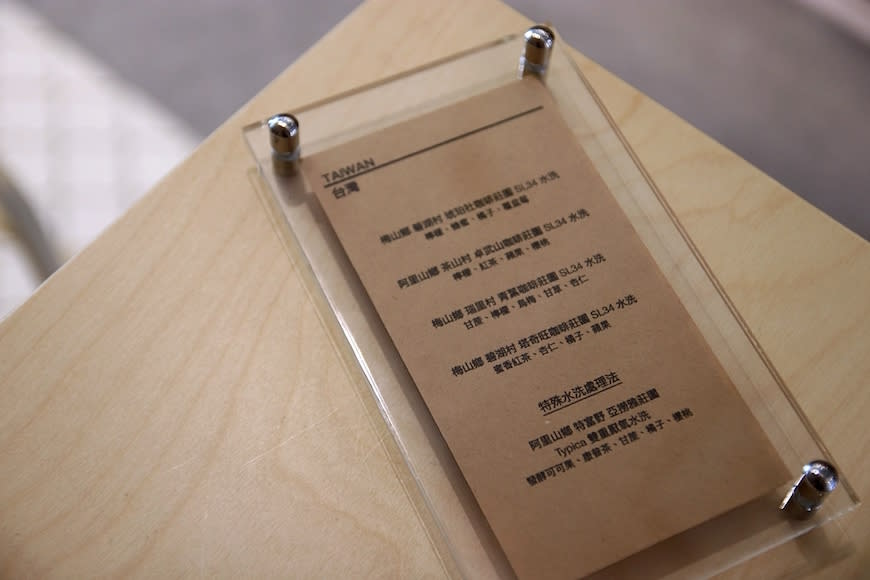 TAIWAN
台灣
梅山鄉 碧湖村 琥珀社咖啡莊園 SL34 水洗
檸檬、蜂蜜、橘子、蔓越莓
阿里山鄉 茶山村 卓武山咖啡莊園 SL34 水洗
檸檬、紅茶、蘋果、櫻桃
梅山鄉 瑞里村 青葉咖啡莊園 SL34 水洗
甘蔗、檸檬、烏梅、甘草、杏仁
梅山鄉 碧湖村 塔奇旺咖啡莊園 SL34 水洗
蜜香紅茶、杏仁、橘子、蘋果
特殊水洗處理法
阿里山鄉 特富野 亞撈雅莊園
Typica 雙重厭氧水洗
發酵可可果、康普茶、甘蔗、橘子、櫻桃